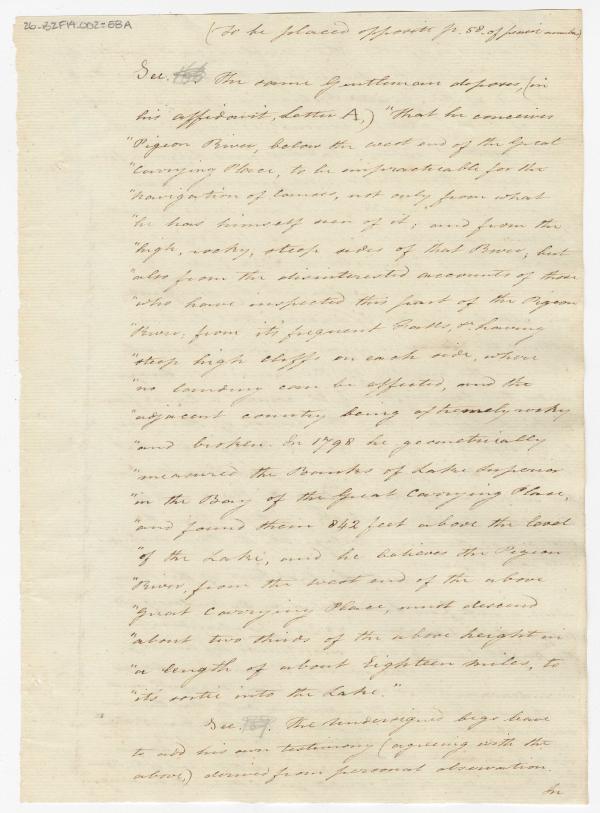 26-Z2F14.002-EBA
(To be placed opposite p. 58. of former number)
Sec. The same Gentleman deposes, (in
his affidavit, Letter A,) "That he conceives
"Pigeon River, below the west end of the Great
"Carrying Place, to be impracticable for the
"navigation of Canoes, not only from what
"he has himself seen of it; and from the
"high, rocky, steep sides of that River; but
"also from the disinterested accounts of those
"who have inspected this part of the Pigeon
"River; from it's frequent Falls, & having
"steep high cliffs on each side, where
"no landing can be effected, and the
"adjacent country being extremely rocky
"and broken. In 1798 he geometrically
"measured the Banks of Lake Superior
"in the Bay of the Great Carrying Place,
"and found them 842 feet above the level
"of the Lake, and he believes the Pigeon
"River, from the west end of the above
"Great Carrying Place, must descend
"about two thirds of the above height in
"a length of about Eighteen miles, to
"it's sortie into the Lake."
Sec. The Undersigned begs leave
to add his own testimony (agreeing with the
above,) derived from personal observation.
In